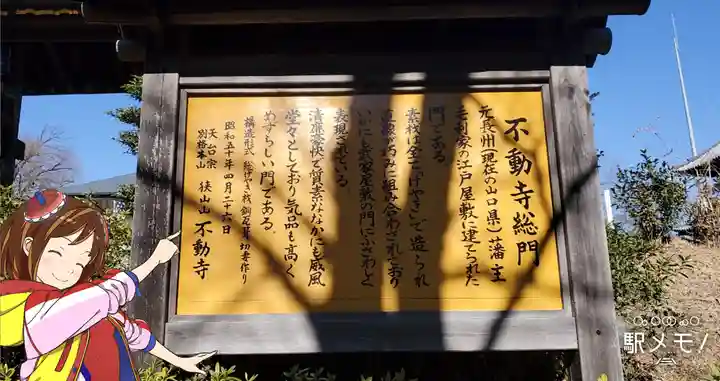 不動寺総門
元長州(現在の山口県)藩主
毛利家の江戸屋敷に建てられた
門である
素材は全て「けやき」で造られ
直線が巧みに組み合わされており
いかにも武家屋敷の門にふさわしく
表現されている
清廉潔白で質素ななかにも威風
堂々としており気品も高く
めずらしい門である。
構造形式 総けやき材 銅瓦葺 切妻作り
昭和五十年四月二十六日
天台宗
別格本山 狭山山 不動寺
駅メモ!